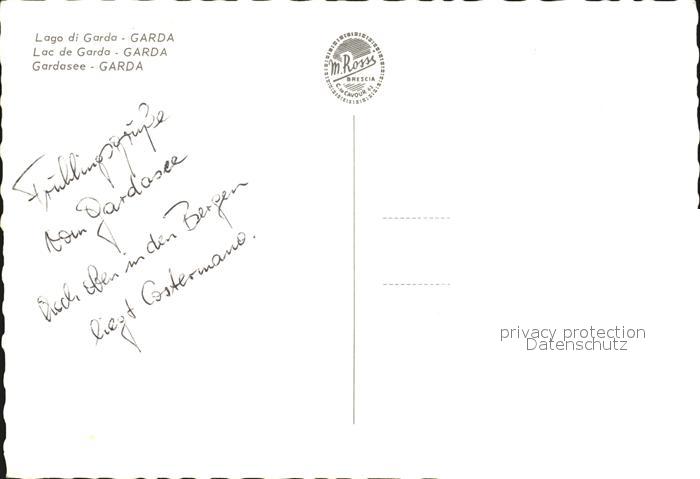 Lago di Garda - GARDA
Lac de Garda - GARDA
Gardasee - GARDA
M. Rossi
BRESCIA
C. CAVOUR 42
Frühlingsgrüße
vom Gardasee
oben in den Bergen
liegt Costermano.
privacy protection
Datenschutz